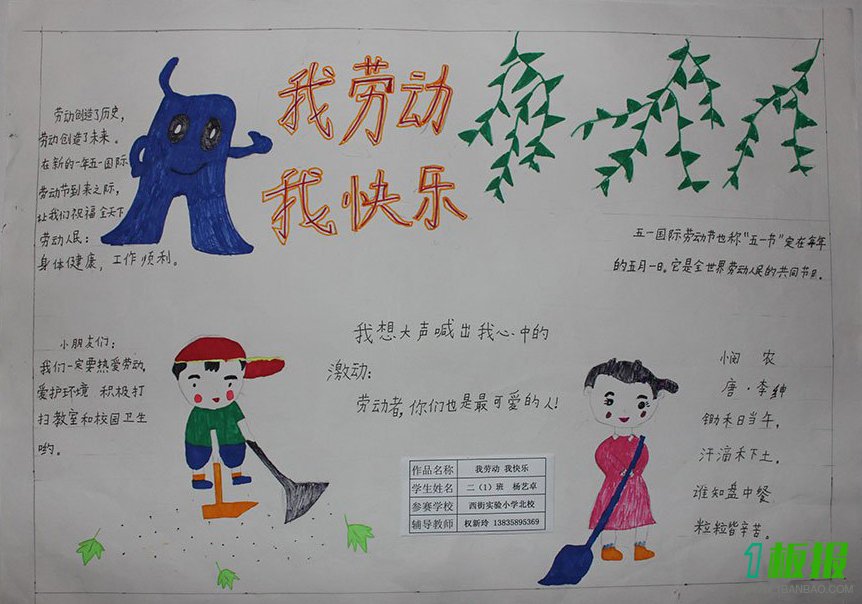 我劳动
我快乐
劳动创造了历史,
劳动创造了未来。
在新的一年五一国际
劳动节到来之际,
让我们祝福全天下
劳动人民:
身体健康,工作顺利。
五一国际劳动节也称“五一节”定在每年
的五月一日。它是全世界劳动人民的共同节日。
小朋友们:
我们一定要热爱劳动,
爱护环境 积极打
扫教室和校园卫生
哟。
我想大声喊出我心中的
激动:
劳动者,你们也是最可爱的人!
悯 农
唐·李绅
锄禾日当午,
汗滴禾下土,
谁知盘中餐
粒粒皆辛苦。
作品名称 我劳动 我快乐
学生姓名 二(1)班 杨艺卓
参赛学校 西街实验小学北校
辅导教师 权新玲 13835895369
1板报
WWW.1BANBAO.COM